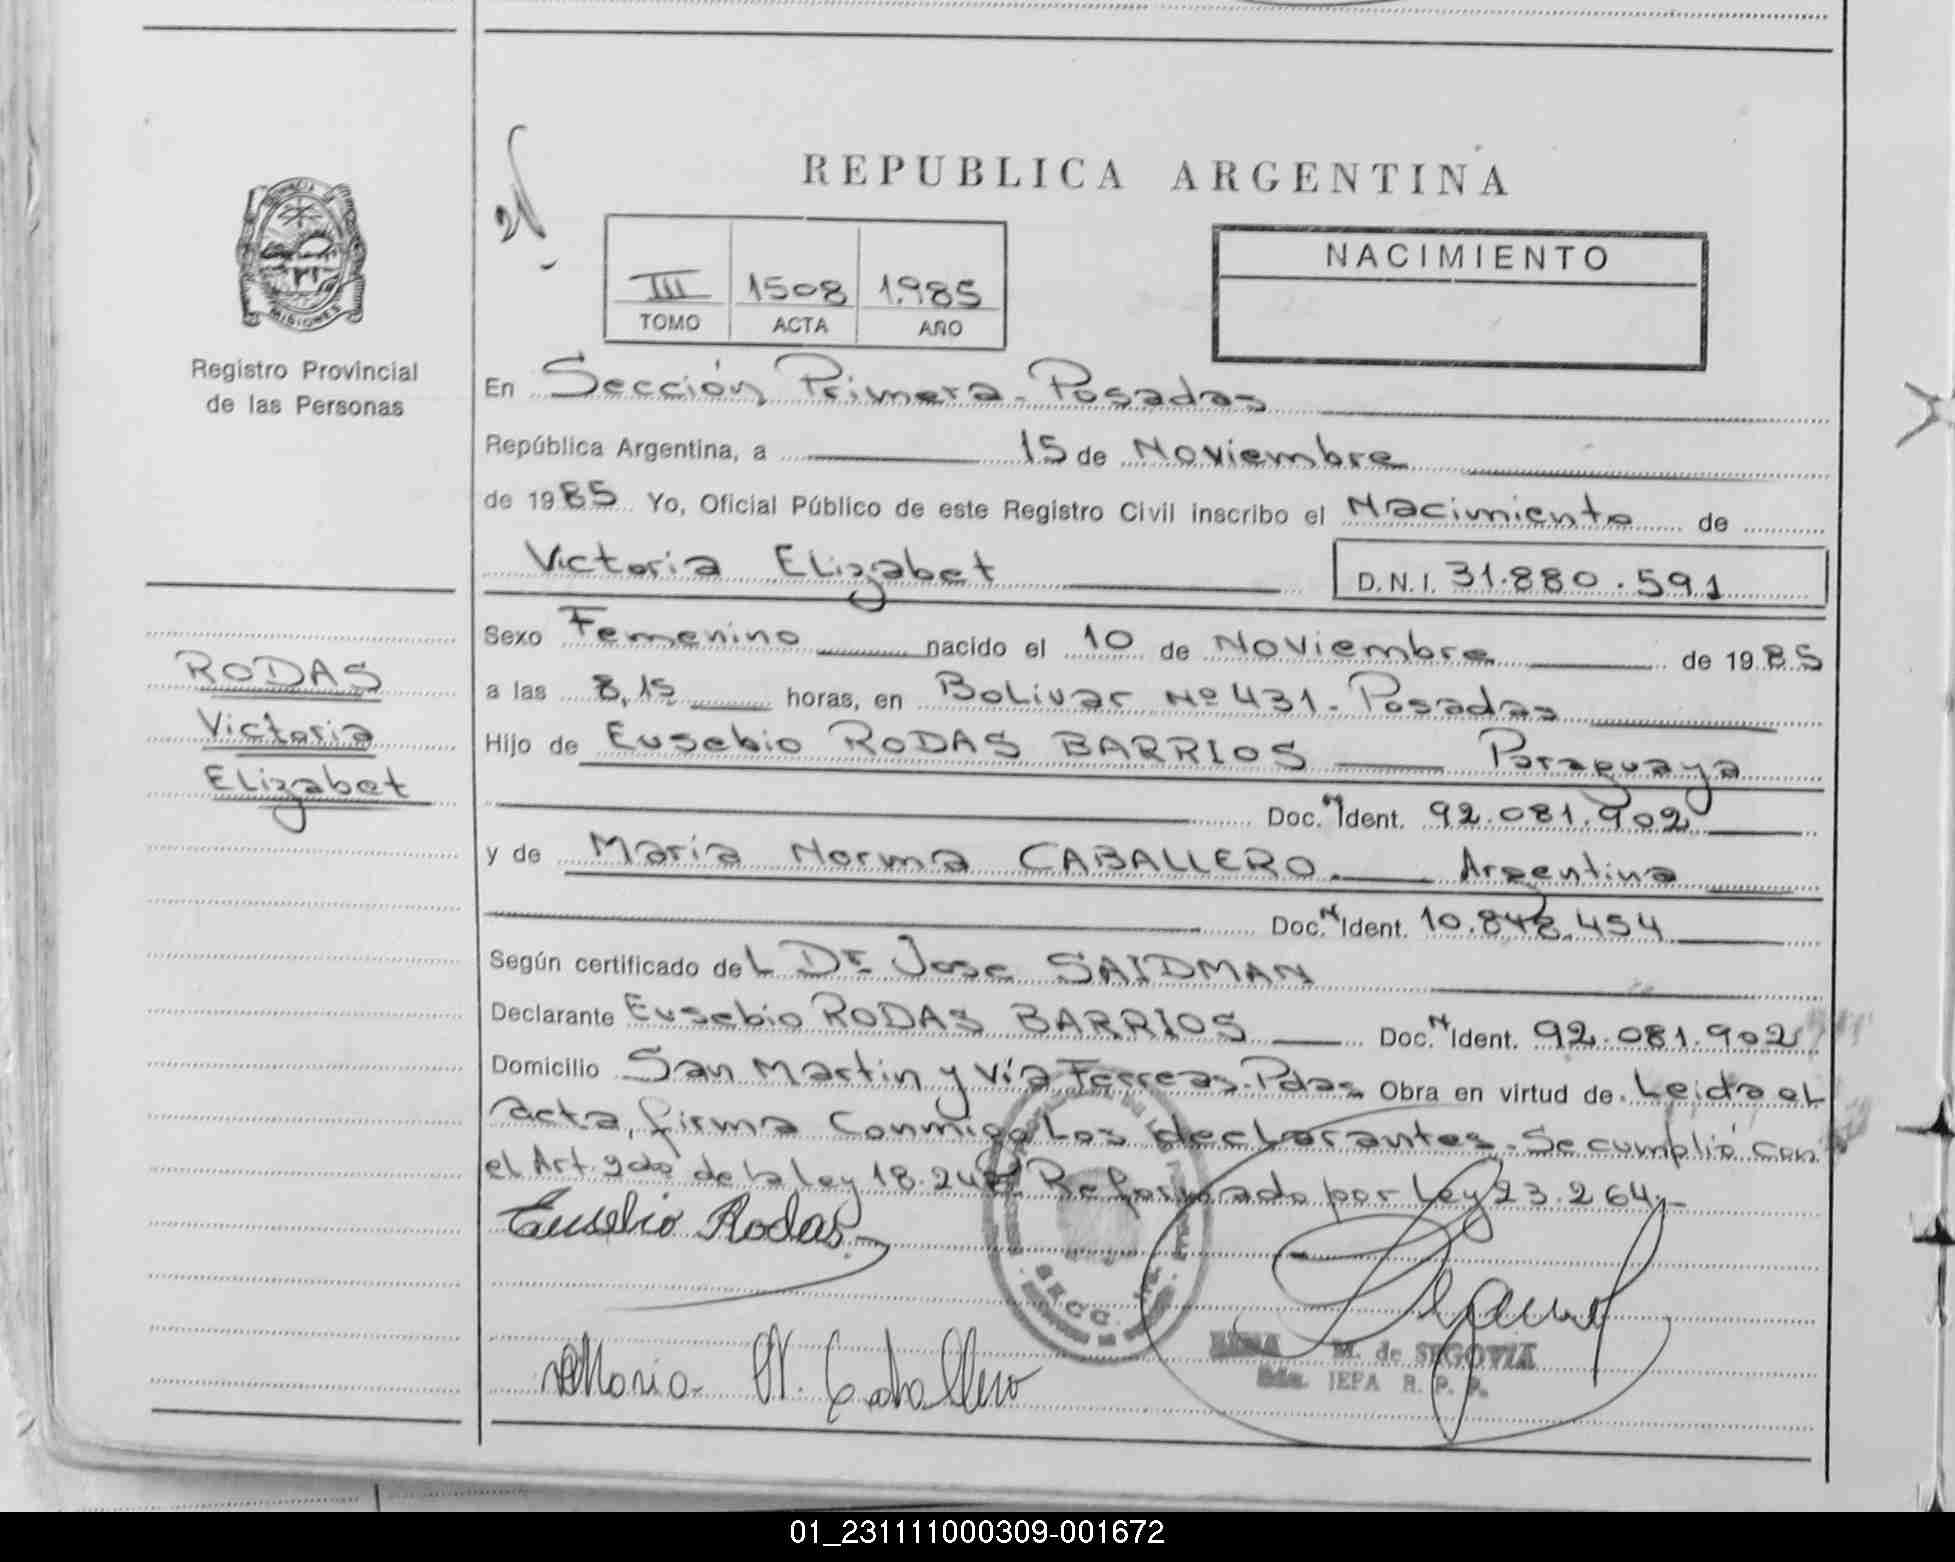 REPUBLICA ARGENTINA
III 1508 1.985
TOMO ACTA AÑO
NACIMIENTO
PROVINCIA
MISIONES
Registro Provincial
de las Personas
En Sección Primera - Posadas
República Argentina, a 15 de Noviembre
de 1985 Yo, Oficial Público de este Registro Civil inscribo el Nacimiento de
Victoria Elizabet D.N.I. 31.880.591
Sexo Femenino nacido el 10 de Noviembre de 1985
a las 8,15 horas, en Bolivar Nº 431 - Posadas
Hijo de Eusebio RODAS BARRIOS Paraguaya
Doc. N Ident. 92.081.902
y de Maria Norma CABALLERO. Argentina
Doc. N Ident. 10.848.454
Según certificado del Dr. Jose SAIDMAN
Declarante Eusebio RODAS BARRIOS Doc. N Ident. 92.081.902
Domicilio San Martin y Vía Ferreas. Pdas Obra en virtud de Leida el
acta, firma Conmigo los declarantes. Se cumplió con
el Art. 2do de la ley 18.248 Reformado por Ley 23.264.-
RODAS
Victoria
Elizabet
Eusebio Rodas
Maria N. Caballero
M. de SEGOVIA
JEFA R. P. P.
01_231111000309-001672